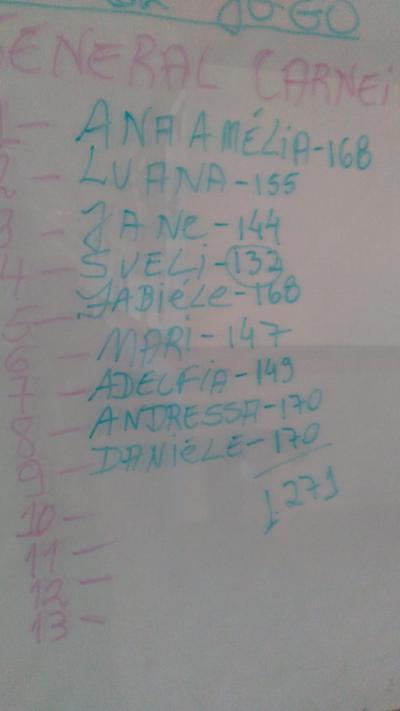 JOGO
GENERAL CARNEI
1- ANA AMÉLIA-168
2- LUANA-155
3- JANE-144
4- SUELI-132
5- FABIÉLE-168
6- MARI-147
7- ADELFIA-149
8- ANDRESSA-170
9- DANIÉLE-170
1.271
10-
11-
12-
13-